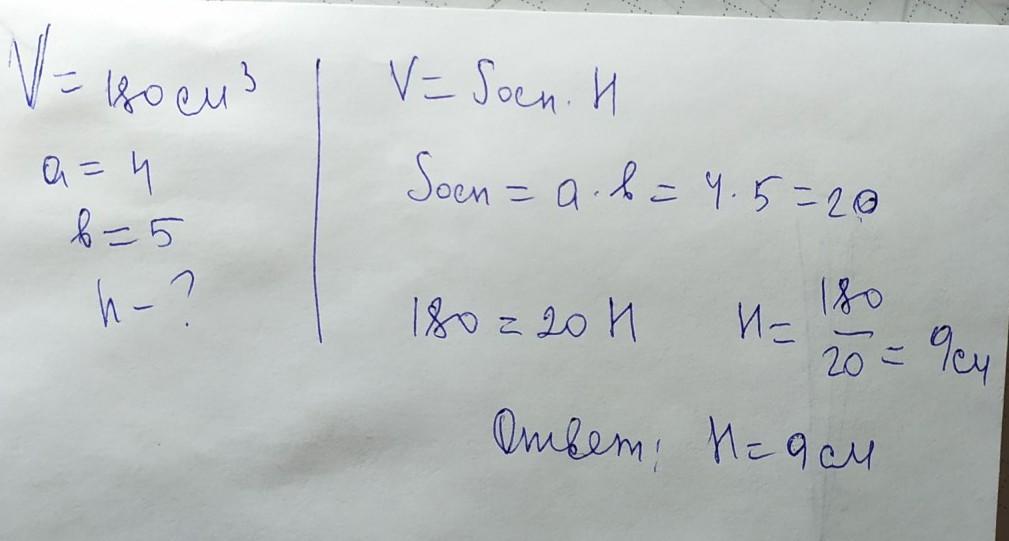 V = 180 см³
a = 4
b = 5
h - ?
V = Sосн. H
Sосн = a · b = 4 · 5 = 20
180 = 20 H    H = 180/20 = 9см
Ответ: H = 9 см